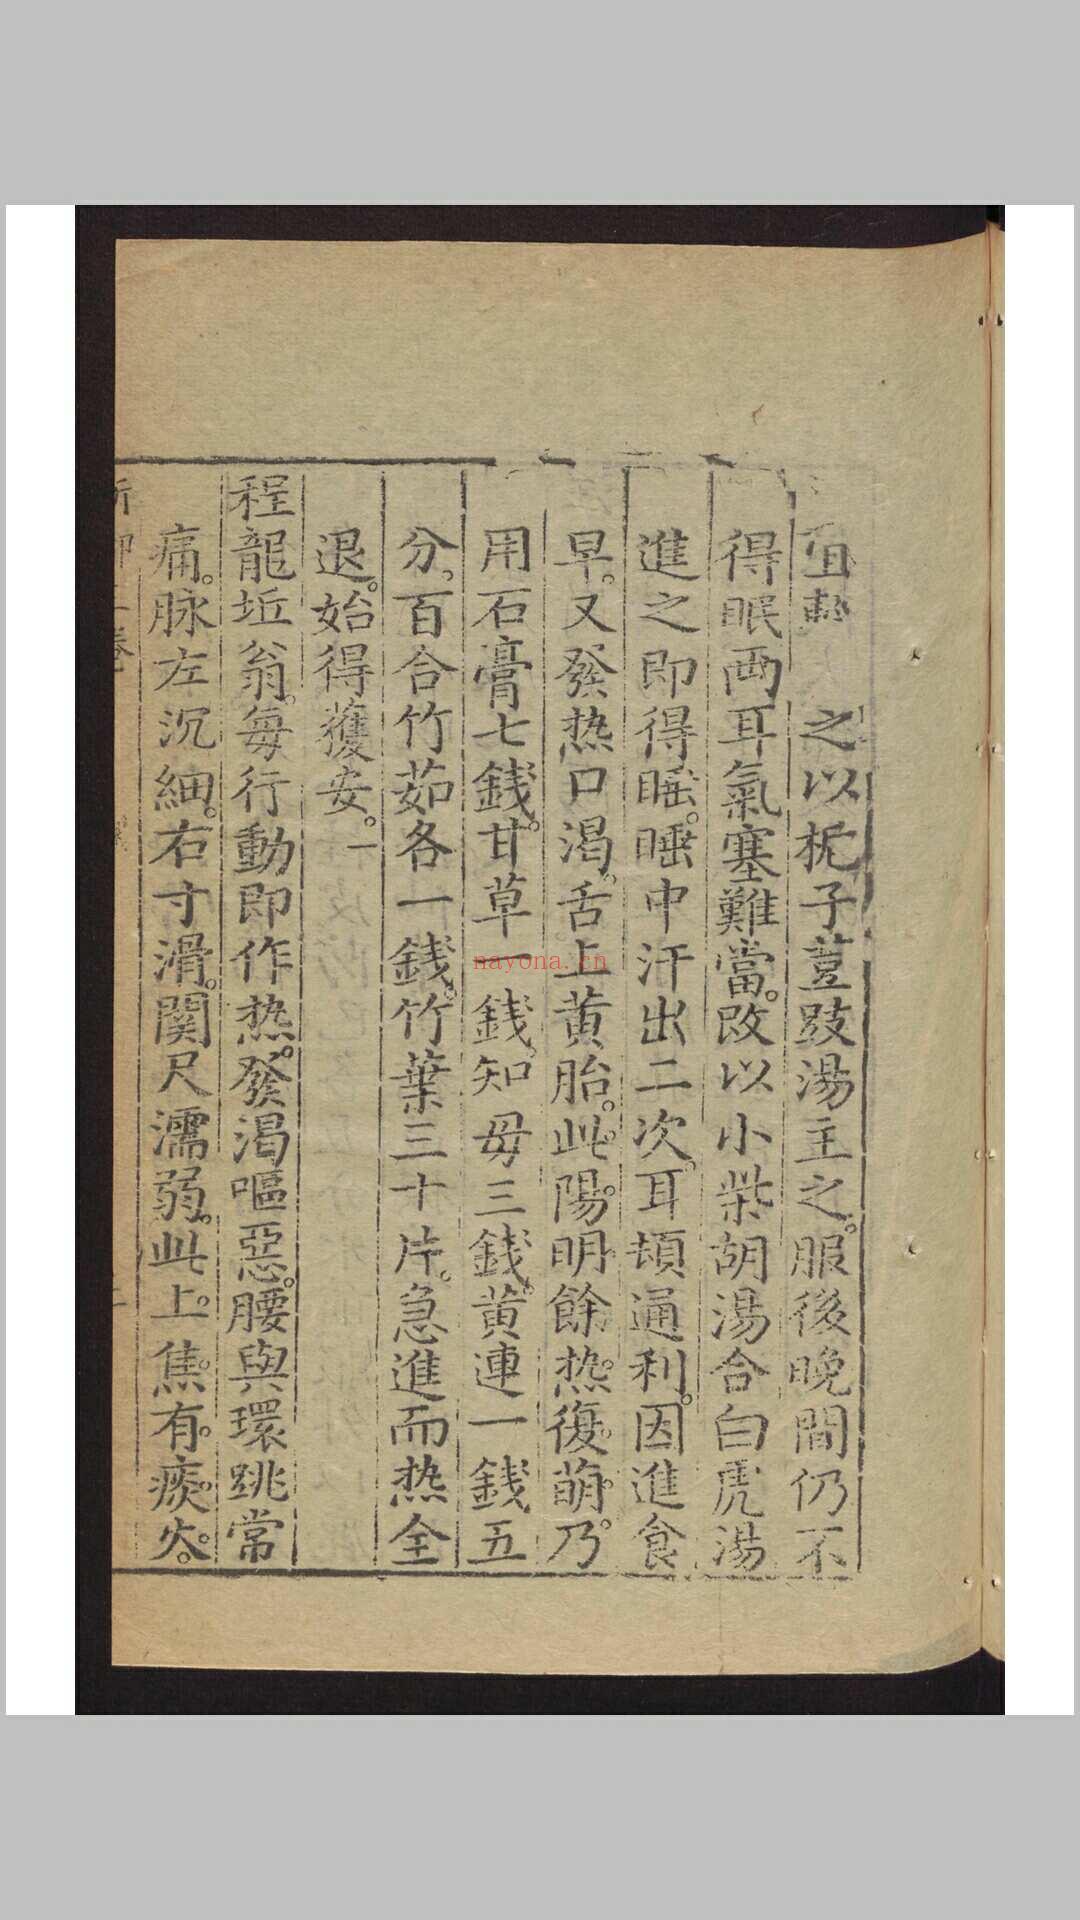 宜 之以栀子荳豉湯主之。服後晚間仍不
得眠两耳氣塞難當。改以小柴胡湯合白虎湯
進之即得睡。睡中汗出二次。耳頓通利。因進食
早。又發热口渴。舌上黄胎。此陽明餘热復萌。乃
用石膏七錢。甘草一錢。知毋三錢。黄連一錢五
分。百合竹茹各一錢。竹葉三十片。急進而热全
退。始得獲安。
程龍坵翁。每行動即作热。發渴嘔惡。腰與環跳常
痛。脉左沉細。右寸滑。関尺濡弱。此上焦有痰火。
nayona.cn